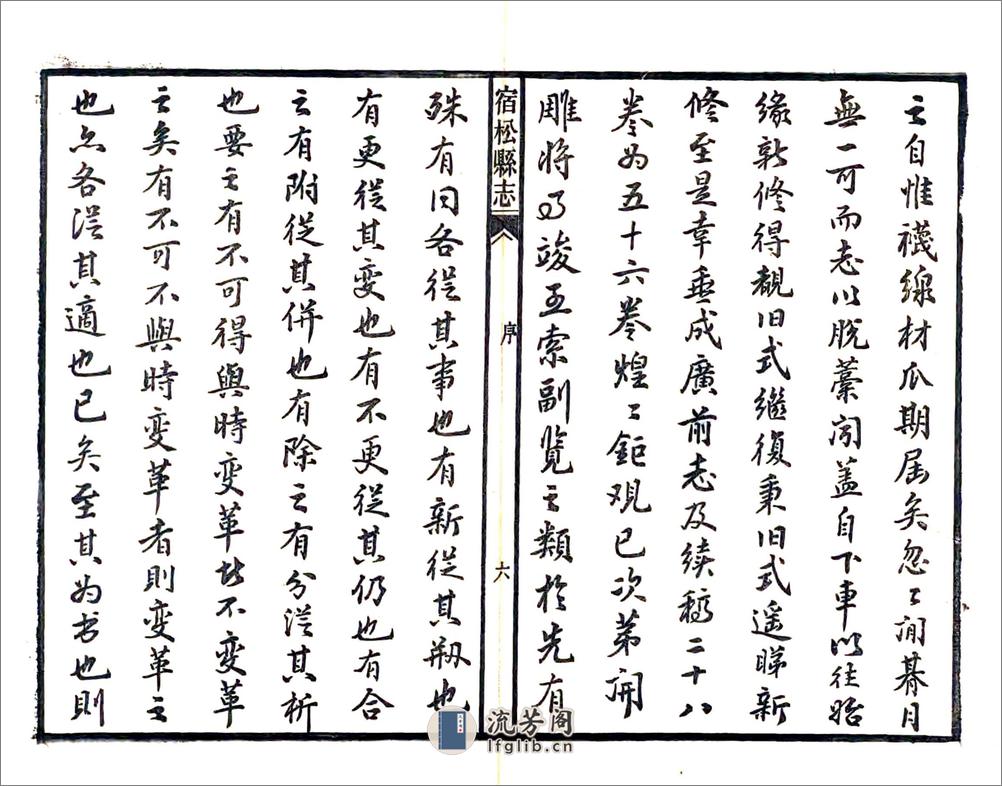 之自惟襪線材瓜期屆矣忽〻間朞月
無一可而志以脫藁聞蓋自下車以往始
緣新修得覩旧式繼復秉旧式遥睇新
修至是幸垂成廣前志及续稿二十八
卷为五十六卷煌〻鉅观已次第開
雕将次竣工索副览之類於先有
宿松縣志
序
六
殊有同各從其事也有新從其剏也
有更從其变也有不更從其仍也有合
之有附從其併也有除之有分從其析
也要之有不可得與時变革者不变革
之矣有不可不與時变革者則变革之
也亦各從其適也已矣至其为书也則
流芳阁
lfglib.cn